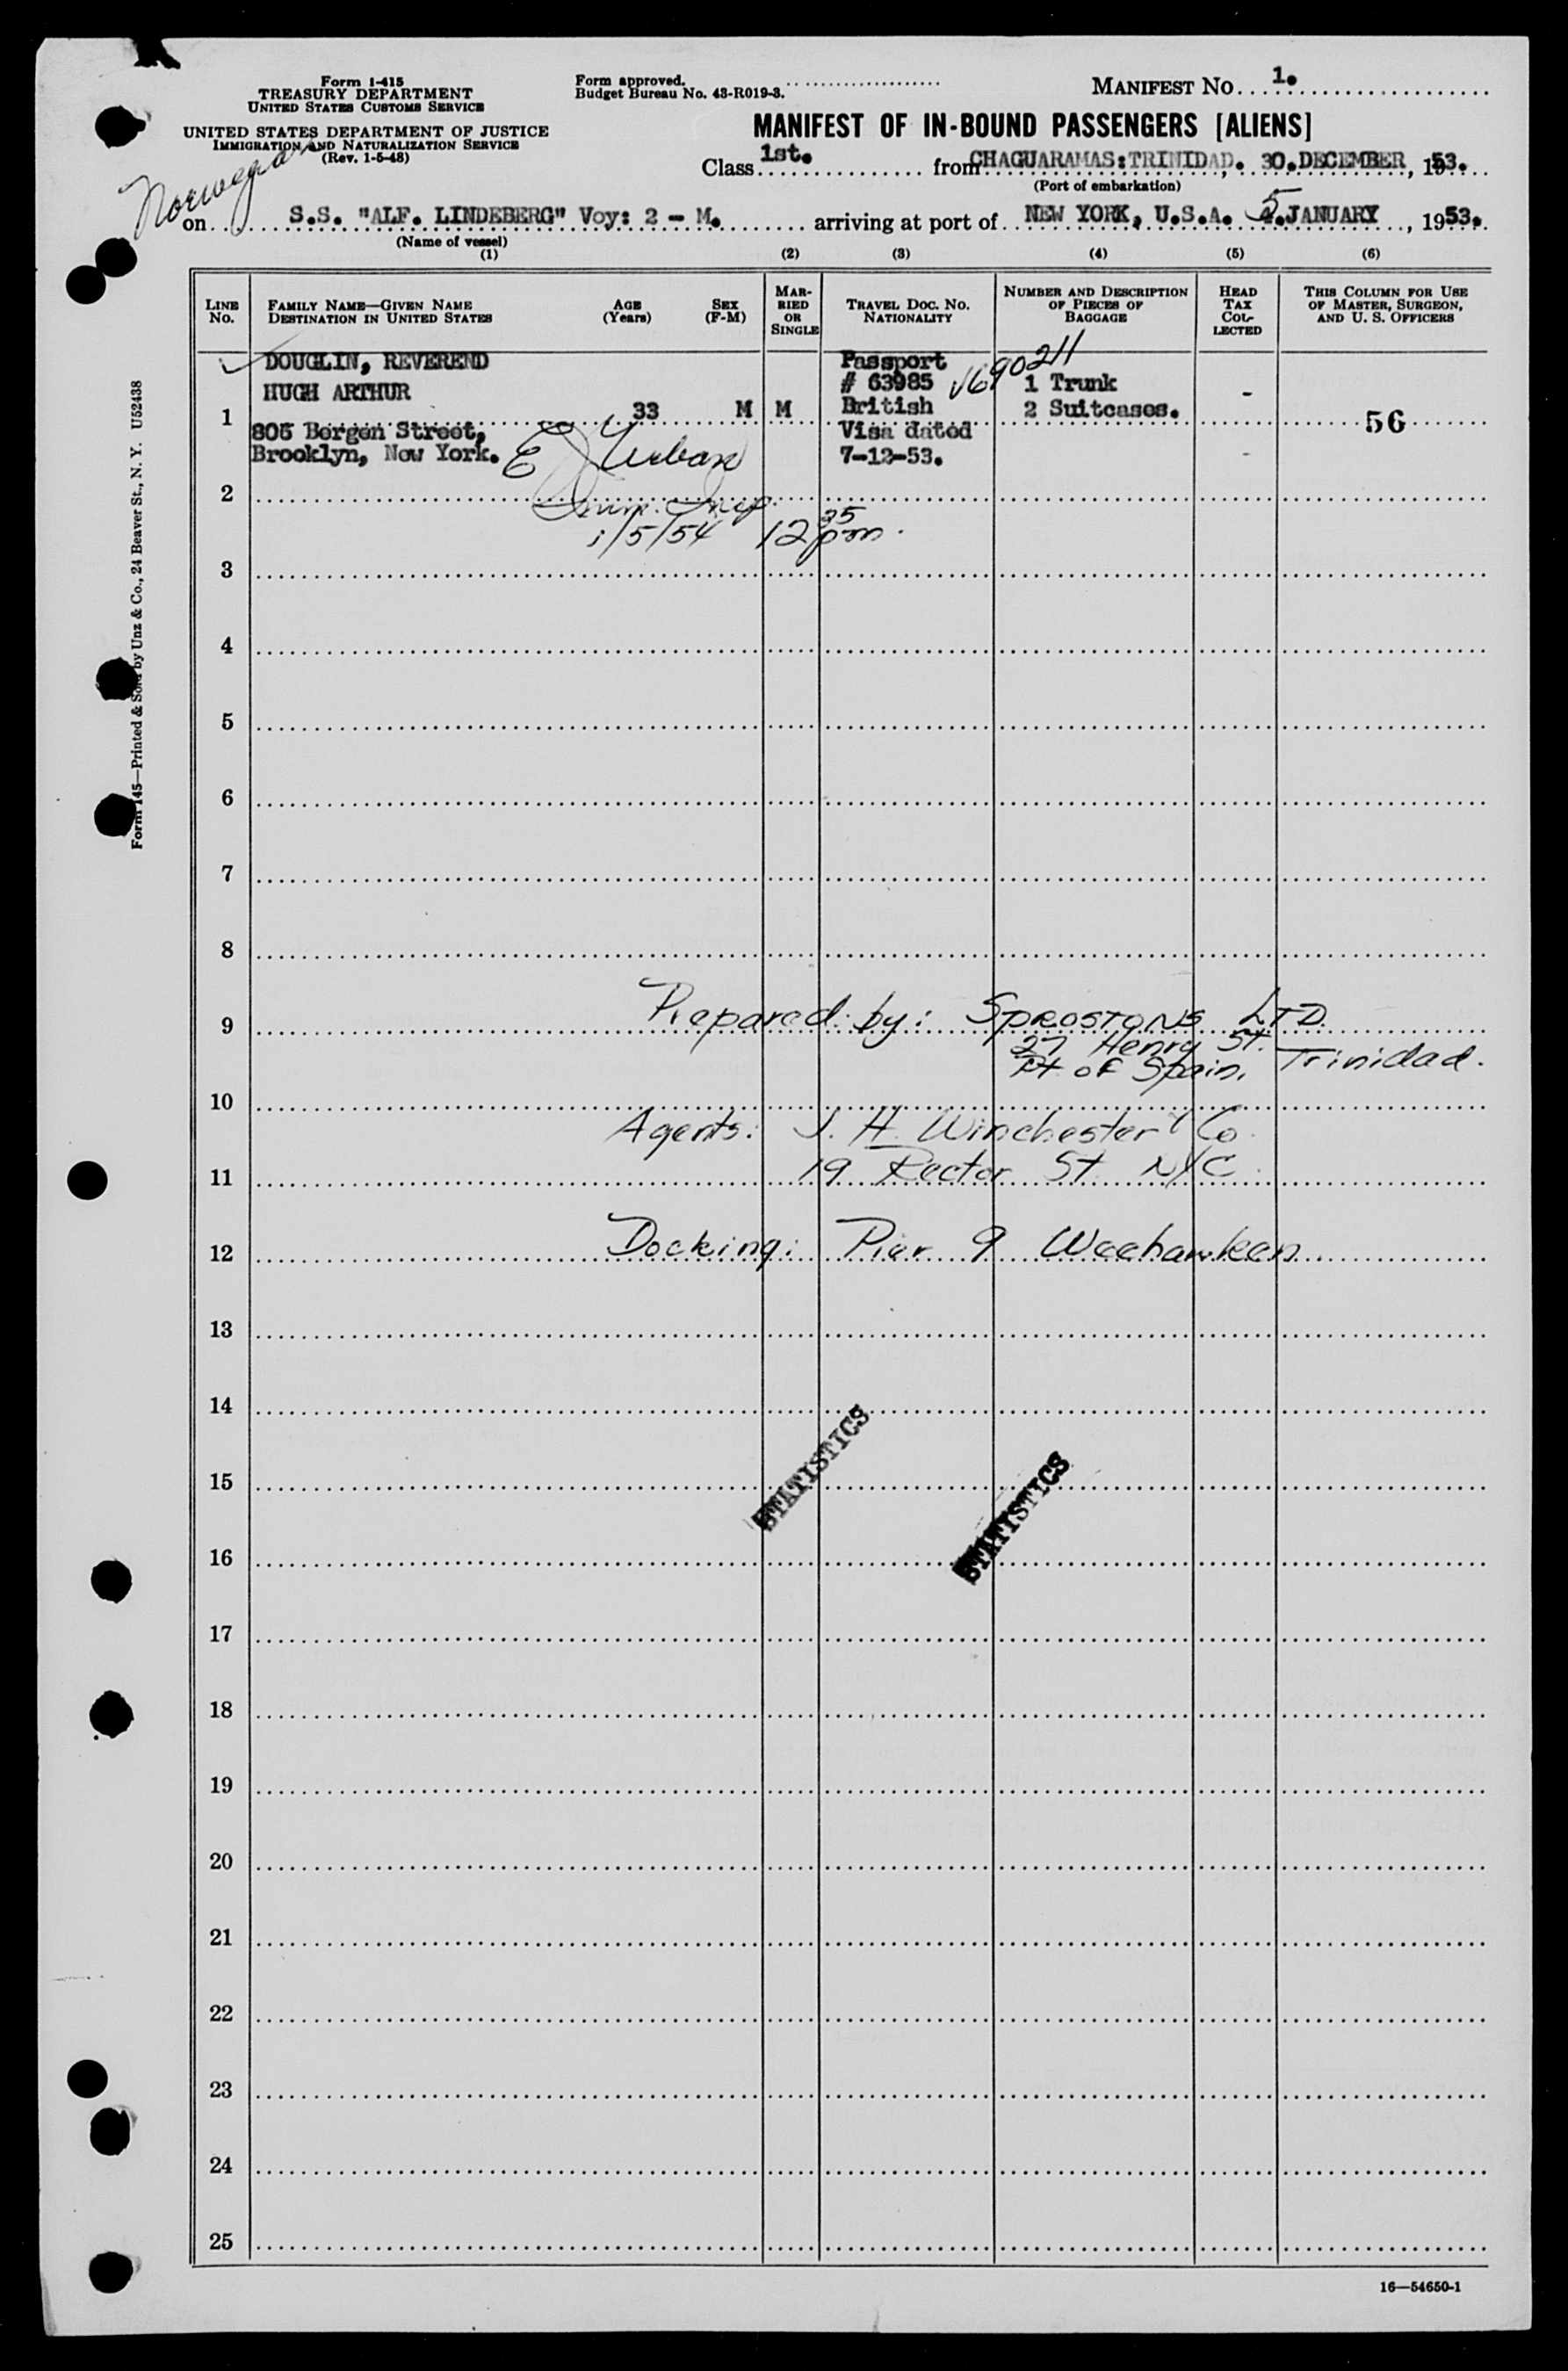 Form I-415
TREASURY DEPARTMENT
UNITED STATES CUSTOMS SERVICE
UNITED STATES DEPARTMENT OF JUSTICE
IMMIGRATION AND NATURALIZATION SERVICE
(Rev. 1-5-48)
Form approved.
Budget Bureau No. 43-R019-3.
MANIFEST NO. 1.
MANIFEST OF IN-BOUND PASSENGERS [ALIENS]
Class 1st. from CHAGUARAMAS:TRINIDAD, 30.DECEMBER, 1953.
(Port of embarkation)
Norwegian
on S.S. "ALF. LINDEBERG" Voy: 2 - M. arriving at port of NEW YORK, U.S.A. 5.JANUARY, 1953.
(Name of vessel)
(1) (2) (3) (4) (5) (6)
LINE NO.
FAMILY NAME—GIVEN NAME
DESTINATION IN UNITED STATES
AGE (Years)
SEX (F-M)
MARRIED OR SINGLE
TRAVEL DOC. NO.
NATIONALITY
NUMBER AND DESCRIPTION OF PIECES OF BAGGAGE
HEAD TAX COLLECTED
THIS COLUMN FOR USE OF MASTER, SURGEON, AND U. S. OFFICERS
DOUGLIN, REVEREND Passport
HUGH ARTHUR # 63985 V690211 1 Trunk -
1 33 M M British 2 Suitcases. 56
805 Bergen Street, Visa dated
Brooklyn, New York. 7-12-53. -
E J Urban
2
Imm. Insp.
1/5/54 12 35 pm.
3
4
5
6
7
8
9 Prepared by: SPROSTONS LTD.
27 Henry St.
Pt of Spain, Trinidad.
10
Agents: J. H. Winchester & Co
11 19 Rector St NYC
12 Docking: Pier 9 Weehawken
13
14
STATISTICS
15
STATISTICS
16
17
18
19
20
21
22
23
24
25
16—54650-1
Form 145—Printed & Sold by Unz & Co., 24 Beaver St., N. Y. U52438